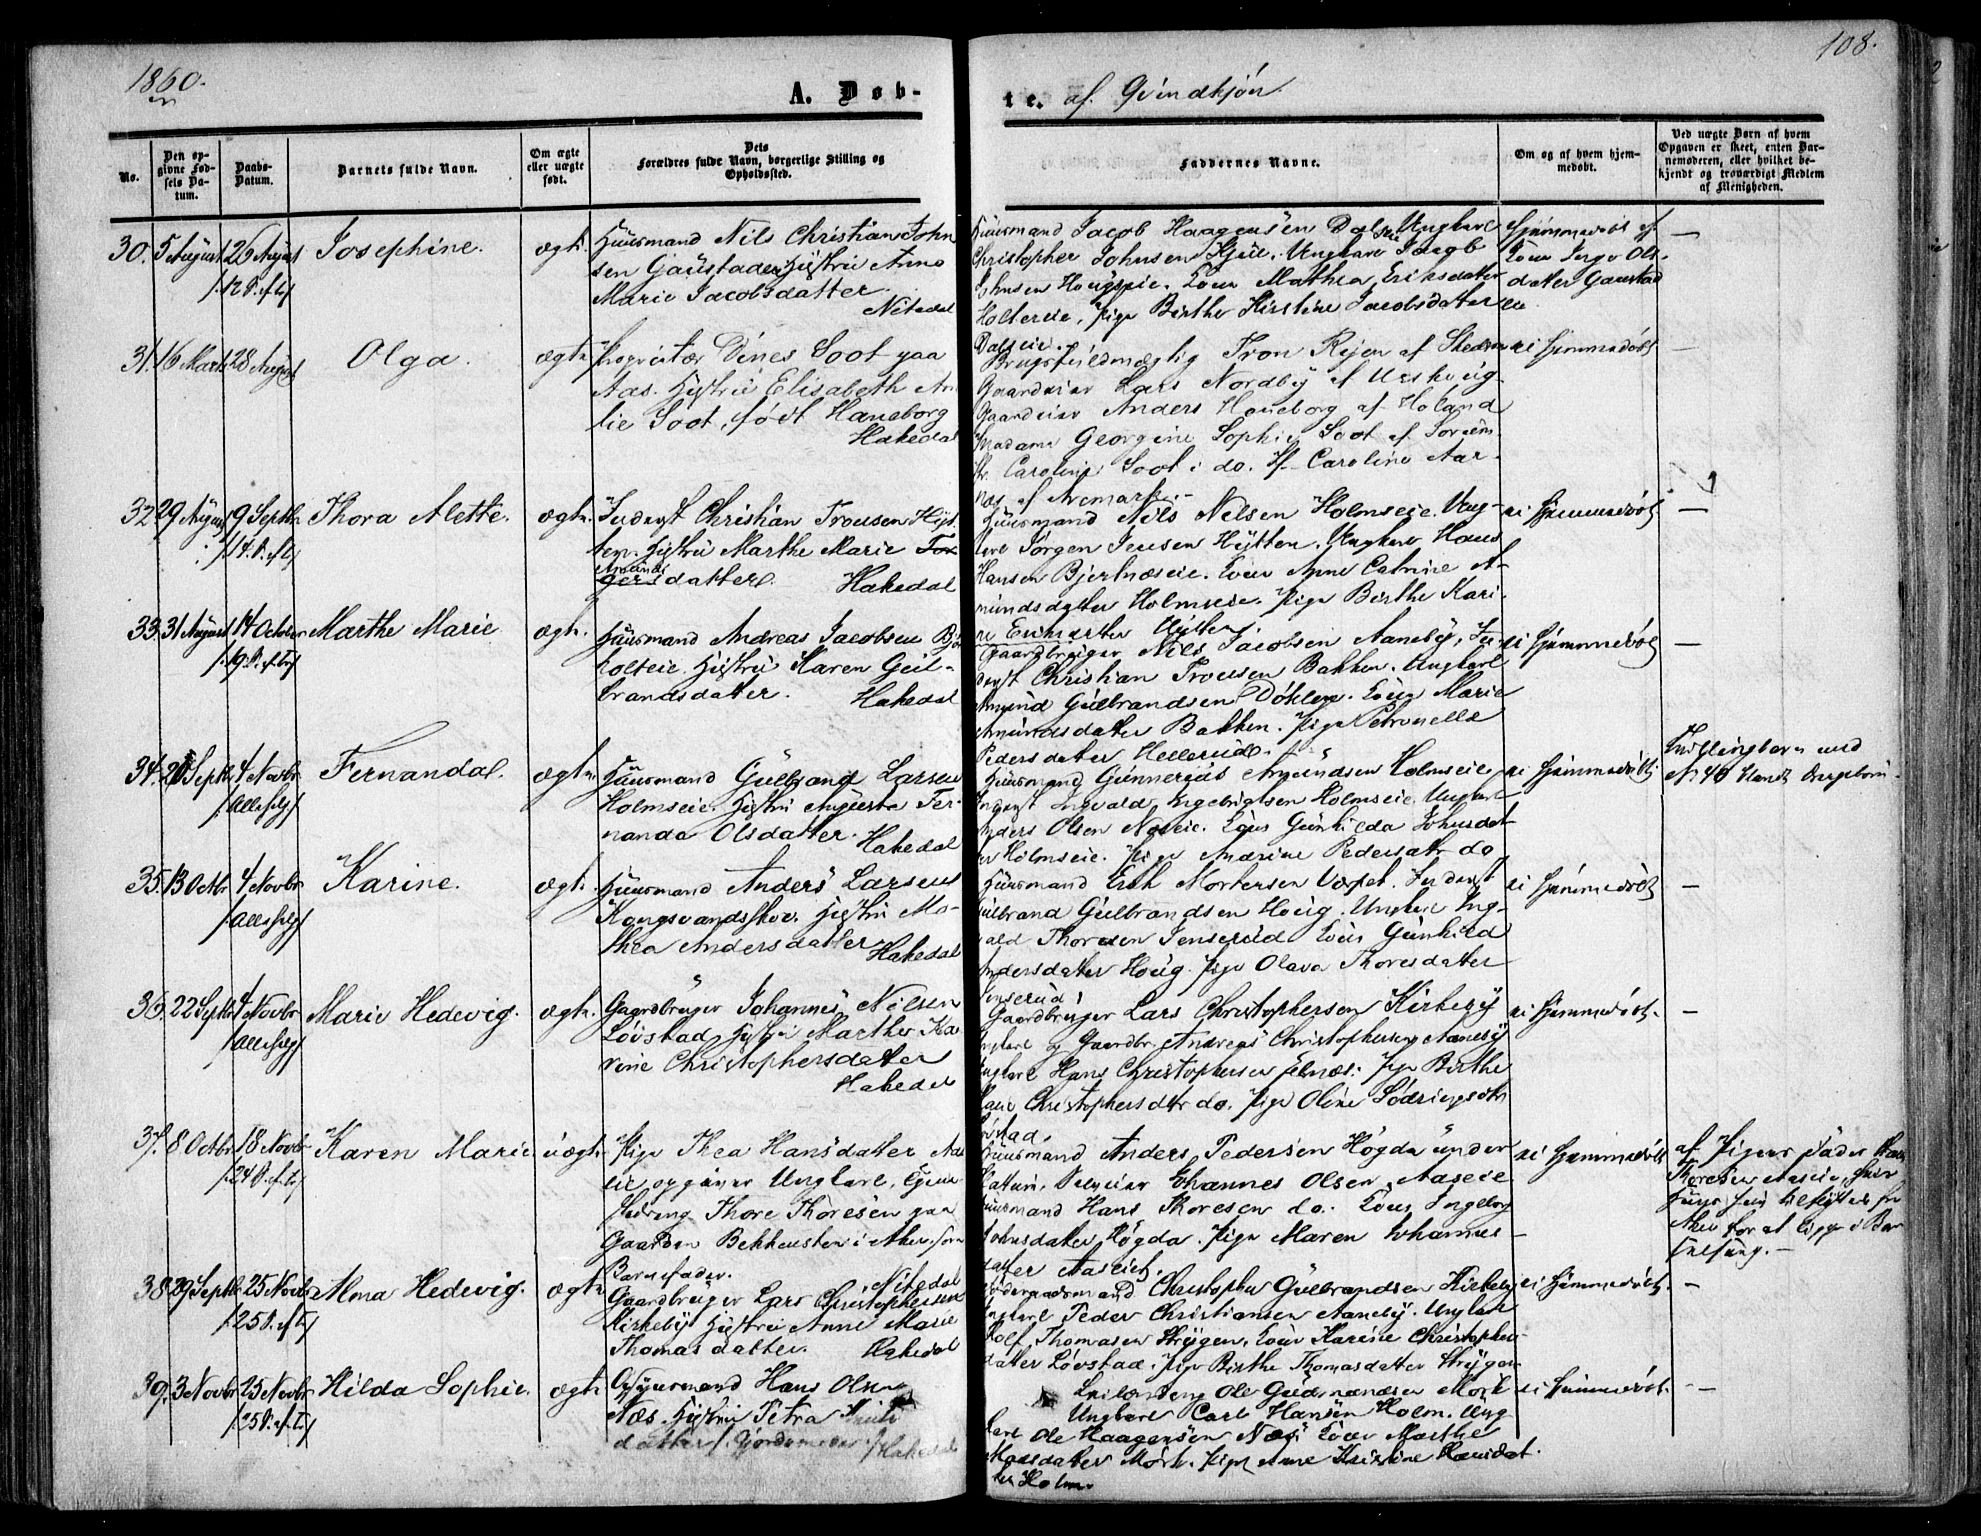 1860.
108.
A. Døb-
te. af Qvindkjön.
No.
Den op-
givne Fød-
sels Da-
tum.
Daabs-
Datum.
Barnets fulde Navn.
Om ægte
eller uægte
født.
Dets
Forældres fulde Navn, borgerlige Stilling og
Opholdssted.
Faddernes Navne.
Om og af hvem hjem-
medøbt.
Ved uægte Børn af hvem
Opgaven er skeet, enten Bar-
nemoderen, eller hvilket be-
kjendt og troværdigt Medlem
af Menigheden.
30. 5 August 26 August Josephine. ægte.
12 S. ef. Trf
Huusmand Nils Christian John
sen Gaustadeie Hustru Anne
Marie Jacobsdatter.
Nitedal
Huusmand Jacob Haagensen Dalseie Ungkarl
Christopher Johnsen Skjul. Ungkarl Jacob
Johnsen Hougseie. Kone Mathea Eriksdatter
Holtereie, Pige Birthe Kirstine Jacobsdatter
Dalseie.
Hjemmedöbt af
Kone Inge Ols-
datter Gaustad
eie
—
31. 16 Marts 28 August Olga. ægte
Proprietær Dines Soot paa
Aas. Hustru Elisabeth Am
lie Soot, født Haneborg
Hakedal
Brugsfuldmægtig Tron Rejer af Skedsmo
Gaardeier Lars Nordby af Urskoug
Gaardeier Anders Haneborg af Høland
Madame Georgine Sophie Soot af Sörum
Fr. Caroline Soot i do. Fr. Caroline Aar-
næs af Aremark.-
ei Hjemmedöbt
—
32 29 August 9 Septbr Thora Alette. ægte.
14 S. ef. Trf
Inderst Christian Tronsen Hyt
ten. Hustru Marthe Marie Tor
Amunds
gersdatter. Hakedal
Huusmand Nils Nelsen Holmseie. Ung-
karl Jörgen Jensen Hytten. Ungkarl Hans
Hansen Bjertnæseie. Kone Anne Catrine A-
mundsdatter Holmseie. Pige Birthe Kari-
ne Hytten
ei Hjemmedöbt
—
33. 31 August 14 October Marthe Marie ægte.
19 S. ef. Trf
Huusmand Andreas Jacobsen Bjö
holteie. Hustru Karen Gul-
brandsdatter. Hakedal
Gaardbruger Nils Jacobsen Aaneby, In-
derst Christian Tronsen Bakken. Ungkarl
Amund Gulbrandsen Döhlen. Kone Marie
Amundsdatter Bakken. Pige Petronelle
Pedersdatter Hellerud.
ei Hjemmedöbt
—
34. 20 Septbr 4 Novbr Fernanda. ægte
Allehelg
Huusmand Gulbrand Larsen
Holmseie. Hustru Augusta Fer-
nanda Olsdatter. Hakedal
Huusmand Gunnerius Amundsen Holmseie
Inderst Ingvald Engebrigtsen Holmseie. Ungkarl
Anders Olsen Næseie. Kone Gunhilda Johnsdat
ter Holmseie. Pige Andrine Pedersdtr do
ei Hjemmedöbt
Tvillingbarn med
No 40 Mandk
35. 13 Octbr 4 Novbr Karine. ægte.
Allehelg
Huusmand Anders Larsen
Kongsvandsskov. Hustru Ma-
thea Andersdatter Hakedal
Huusmand Erik Mortensen Væpet. Inderst
Gulbrand Gulbrandsen Houg. Ungkarl Ing-
vald Thoresen Jenserud Kone Gunhild
Andersdatter Houg. Pige Olava Thoresdatter
Jenserud
ei Hjemmedöbt
—
36. 22 Septbr 4 Novbr Marie Hedevig. ægte.
Allehelg
Gaardbruger Johannes Nilsen
Lövstad Hustru Marthe Ka
rine Christophersdatter
Hakedal
Gaardbruger Lars Christophersen Kirkeby
Ungkarl og Gaardbr. Andreas Christophersen Aaneby
Ungkarl Hans Christophersen Elnæs. Pige Birthe
Marie Christophersdtr do. Pige Oline Södringsdtr
Lövstad.
ei Hjemmedöbt.
—
37. 8 Octbr 18 Novbr Karen Marie uægte
24 S. ef. Trf
Pige Thea Hansdatter Aas
eie, opgiver Ungkarl, Tjene
stedreng Thore Thoresen paa
Gaarden Bekkensten i Aker som
Barnefader. Nitedal
Huusmand Anders Pedersen Högda under
Slatum. Selveier Johannes Olsen Aaseie
Huusmand Hans Thoresen do. Kone Ingeborg
Johnsdatter Högda. Pige Maren Johannes-
datter Aaseie.
ei Hjemmedöbt
af Pigens Fader Hans
Thoresen Aaseie,
for at ligge i Bar
selseng.-
38 29 Septbr 25 Novbr Alma Hedevig. ægte
25 S. ef. Trf
Gaardbruger Lars Christophersen
Kirkeby Hustru Anne Marie
Thomasdatter. Hakedal
Föderaadsmand Christopher Gulbrandsen Kirkeby
Ungkarl Peder Christiansen Aaneby. Ungkarl
Rolf Thomasen Strygen. Kone Karine Christophers-
datter Lövstad. Pige Birthe Thomasdatter Strygen
ei Hjemmedöbt.
—
39. 3 Novbr 25 Novbr Hilda Sophie. ægte
25 S. ef. Trf
Huusmand Hans Olsen
Næs. Hustru Petra
datter Gjordemoder Hakedal
Ole Gudmundsen Mork
Ungkarl Carl Hansen Holm. Ung
karl Ole Haagensen Næs. Kone Marthe
Hansdatter Mörk. Pige Anne Kristine Hansdat
ter Holm.
ei Hjemmedöbt.
—